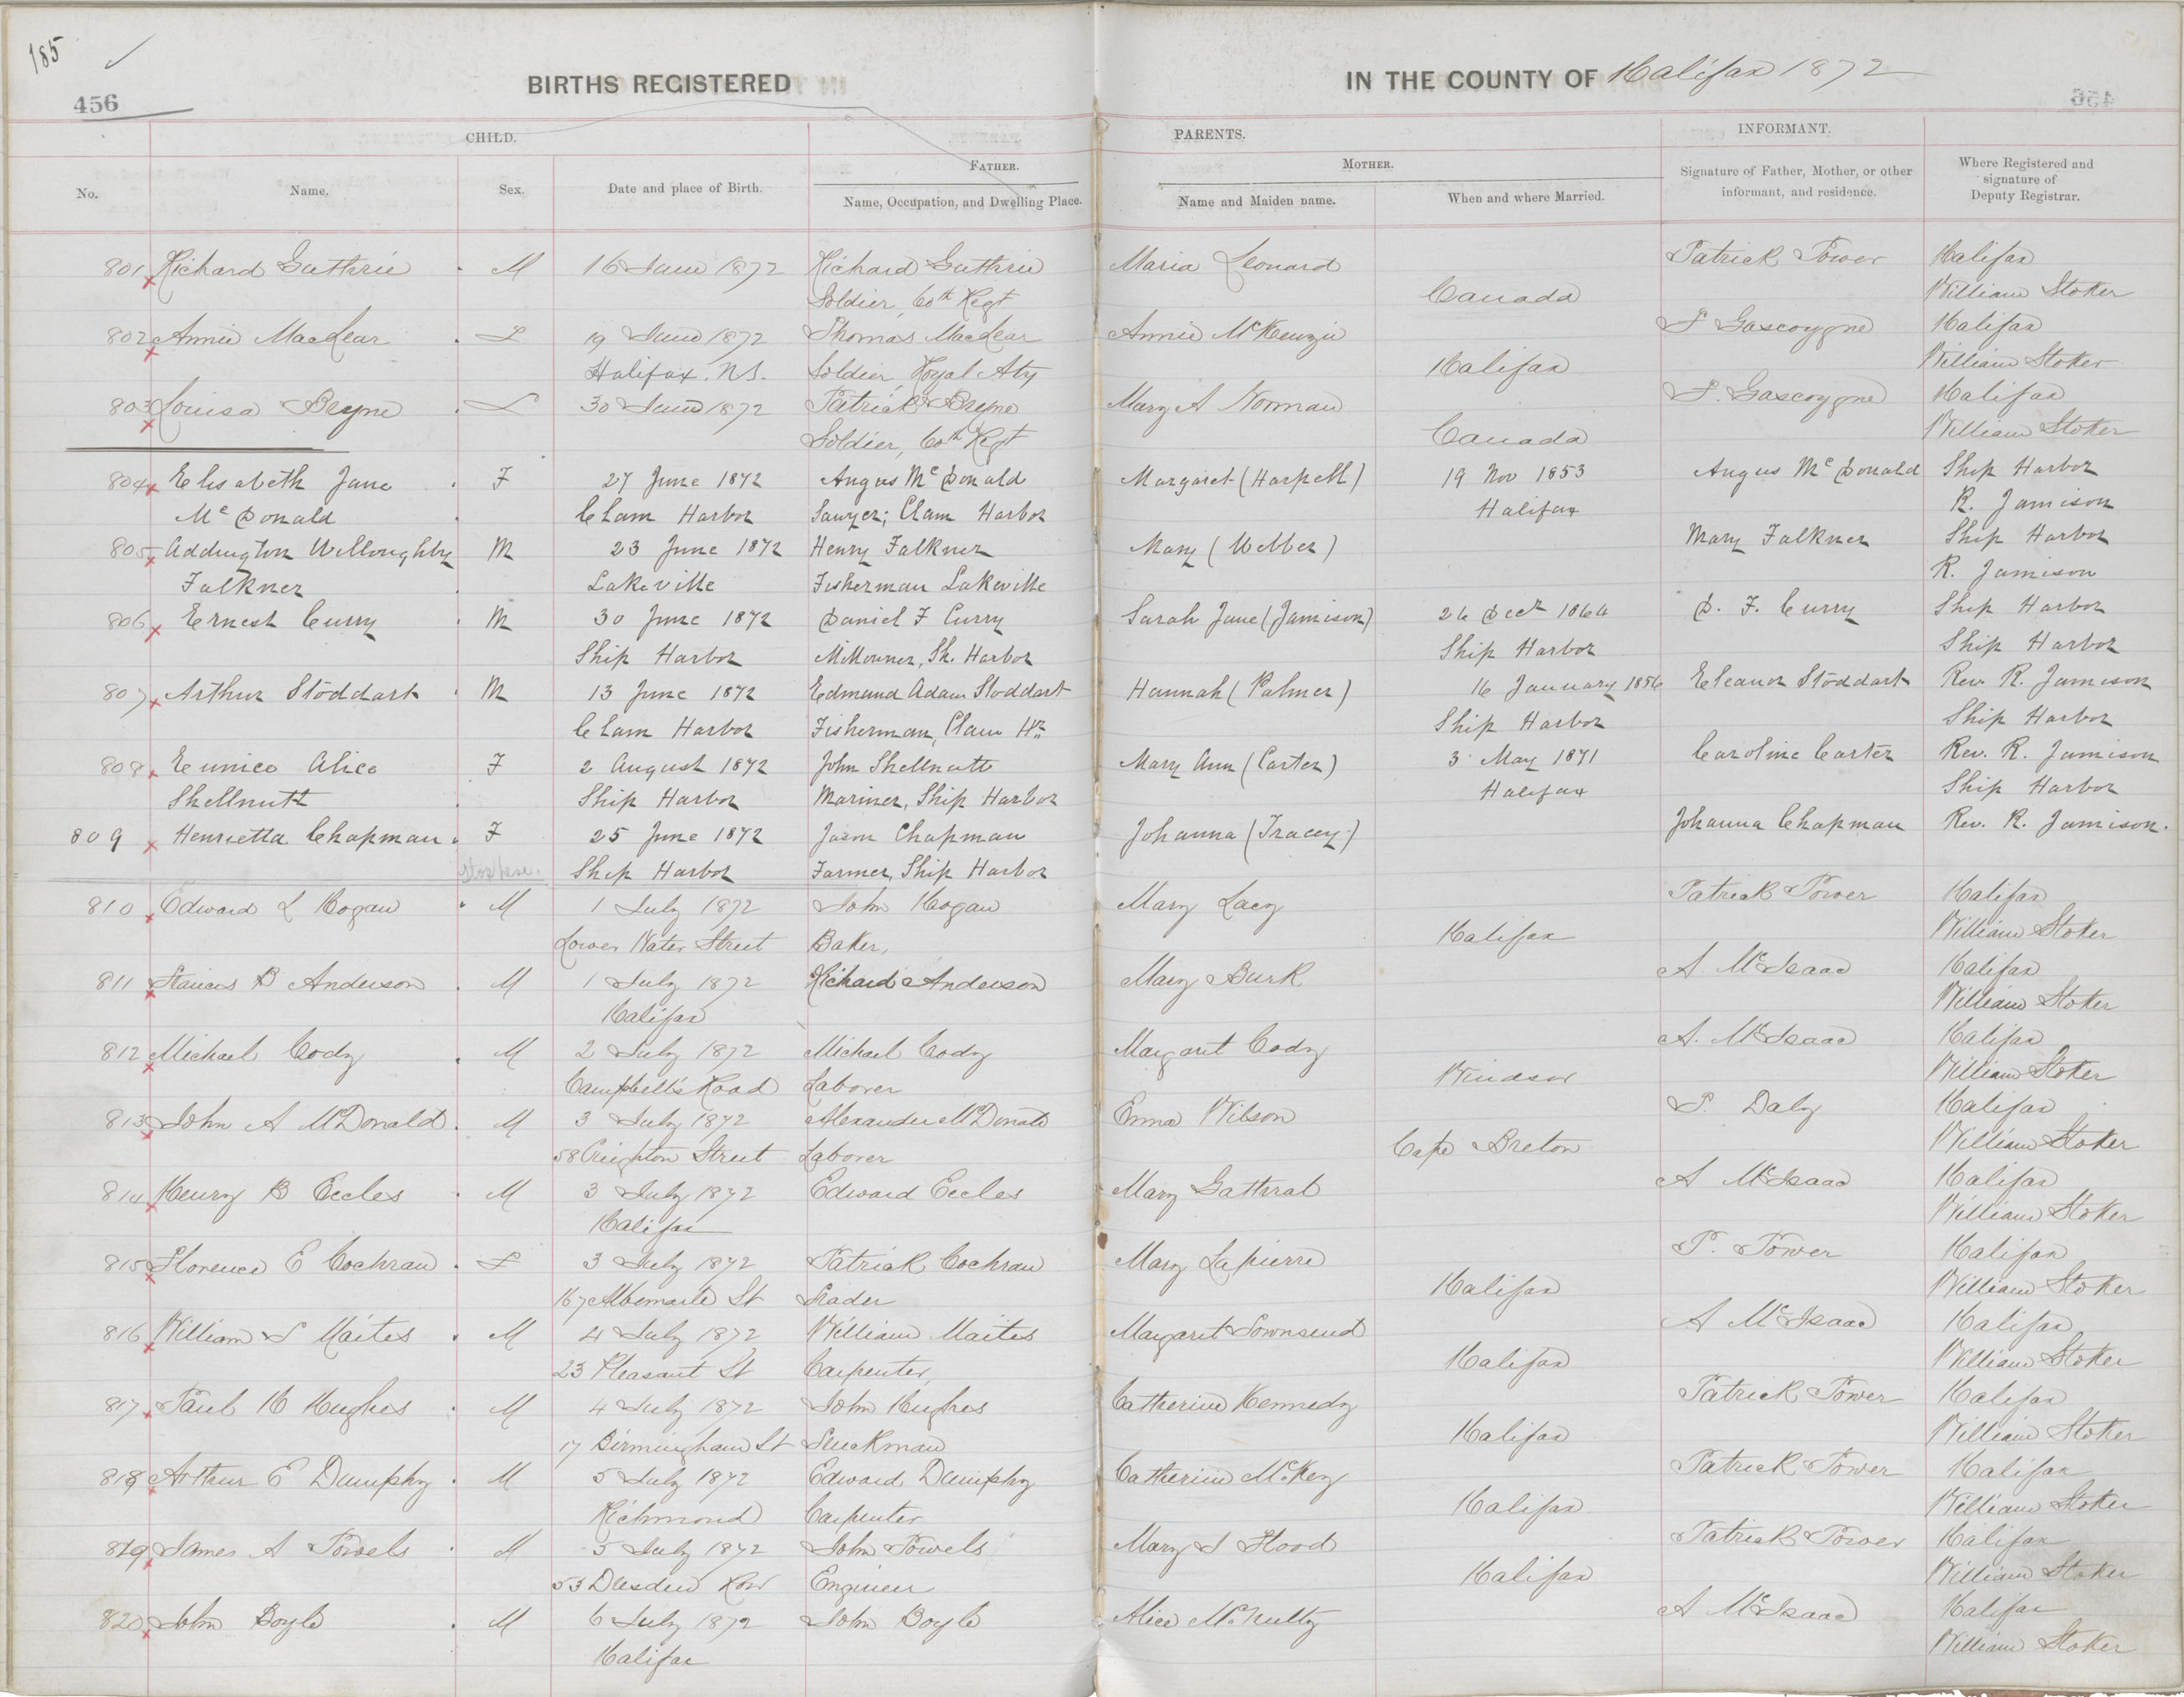 185
456
BIRTHS REGISTERED
IN THE COUNTY OF Halifax 1872
CHILD.
PARENTS.
INFORMANT.
No. Name. Sex. Date and place of Birth.
FATHER.
Name, Occupation, and Dwelling Place.
MOTHER.
Name and Maiden name. When and where Married.
Signature of Father, Mother, or other informant, and residence.
Where Registered and signature of Deputy Registrar.
801 Richard Guthrie M 16 June 1872 Richard Guthrie Maria Leonard Patrick Power Halifax
Soldier, 60th Regt Canada William Stoker
802 Annie MacLear F 19 June 1872 Thomas MacLear Annie McKenzie F Gascoygne Halifax
Halifax. N.S. Soldier, Royal Aty Halifax William Stoker
803 Louisa Breyne F 30 June 1872 Patrick Breyne Mary A Norman F. Gascoygne Halifax
Soldier, 60th Regt Canada William Stoker
804 Elisabeth Jane F 27 June 1872 Angus McDonald Margaret (Harpell) 19 Nov 1853 Angus McDonald Ship Harbor
McDonald Clam Harbor Sawyer; Clam Harbor Halifax R. Jamison
805 Addington Willoughby M 23 June 1872 Henry Falkner Mary (Webber) Mary Falkner Ship Harbor
Falkner Lakeville Fisherman Lakeville R. Jamison
806 Ernest Curry M 30 June 1872 Daniel F Curry Sarah Jane (Jamison) 26 Decr 1864 D. F. Curry Ship Harbor
Ship Harbor Millowner, Sh. Harbor Ship Harbor Ship Harbor
807 Arthur Stoddart M 13 June 1872 Edmund Adam Stoddart Hannah (Palmer) 16 January 1856 Eleanor Stoddart Rev. R. Jamison
Clam Harbor Fisherman, Clam Hr Ship Harbor Ship Harbor
808 Eunice Alice F 2 August 1872 John Shellnutt Mary Ann (Carter) 3 May 1871 Caroline Carter Rev. R. Jamison
Shellnutt Ship Harbor Mariner, Ship Harbor Halifax Ship Harbor
809 Henrietta Chapman F 25 June 1872 Jason Chapman Johanna (Tracey) Johanna Chapman Rev. R. Jamison.
Ship Harbor Farmer, Ship Harbor
810 Edward L Hogan M 1 July 1872 John Hogan Mary Lacy Patrick Power Halifax
Lower Water Street Baker, Halifax William Stoker
811 Francis B Anderson M 1 July 1872 Richard Anderson Mary Burk A. McIsaac Halifax
Halifax William Stoker
812 Michael Cody M 2 July 1872 Michael Cody Margaret Cody A. McIsaac Halifax
Campbell's Road Laborer Windsor William Stoker
813 John A McDonald M 3 July 1872 Alexander McDonald Emma Wilson P. Daly Halifax
58 Creighton Street Laborer Cape Breton William Stoker
814 Henry B Eccles M 3 July 1872 Edward Eccles Mary Gathral A McIsaac Halifax
Halifax William Stoker
815 Florence E Cochran F 3 July 1872 Patrick Cochran Mary Lapierre P. Power Halifax
167 Albemarle St Trader Halifax William Stoker
816 William S Maites M 4 July 1872 William Maites Margaret Townsend A McIsaac Halifax
23 Pleasant St Carpenter, Halifax William Stoker
817 Paul H Hughes M 4 July 1872 John Hughes Catherine Kennedy Patrick Power Halifax
17 Birmingham St Truckman Halifax William Stoker
818 Arthur E Dumphy M 5 July 1872 Edward Dumphy Catherine McKey Patrick Power Halifax
Richmond Carpenter Halifax William Stoker
819 James A Powels M 5 July 1872 John Powels Mary S Flood Patrick Power Halifax
53 Dresden Row Engineer Halifax William Stoker
820 John Boyle M 6 July 1872 John Boyle Alice McNulty A McIsaac Halifax
Halifax William Stoker